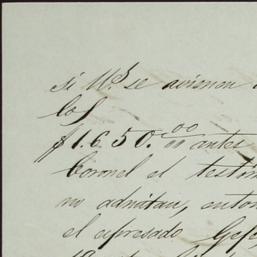 Si Us. se avienen
los
$1.650.00 antes
Coronel el testim
ni admitan, enton
el espresado Gefe